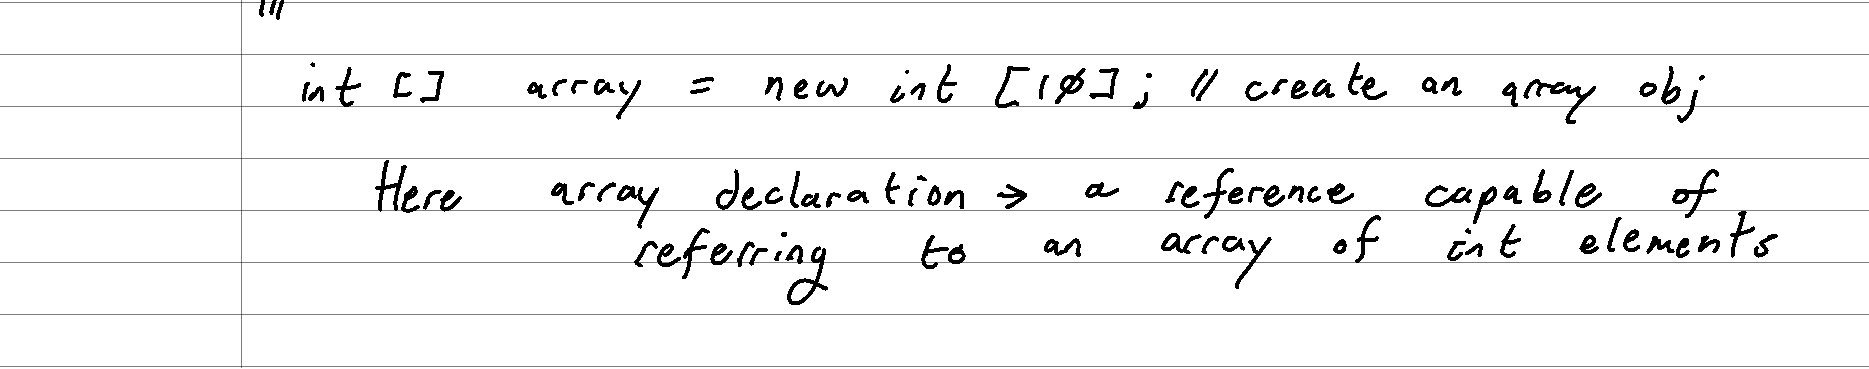 int [] array = new int [10]; // create an array obj
Here array declaration → a reference capable of
referring to an array of int elements